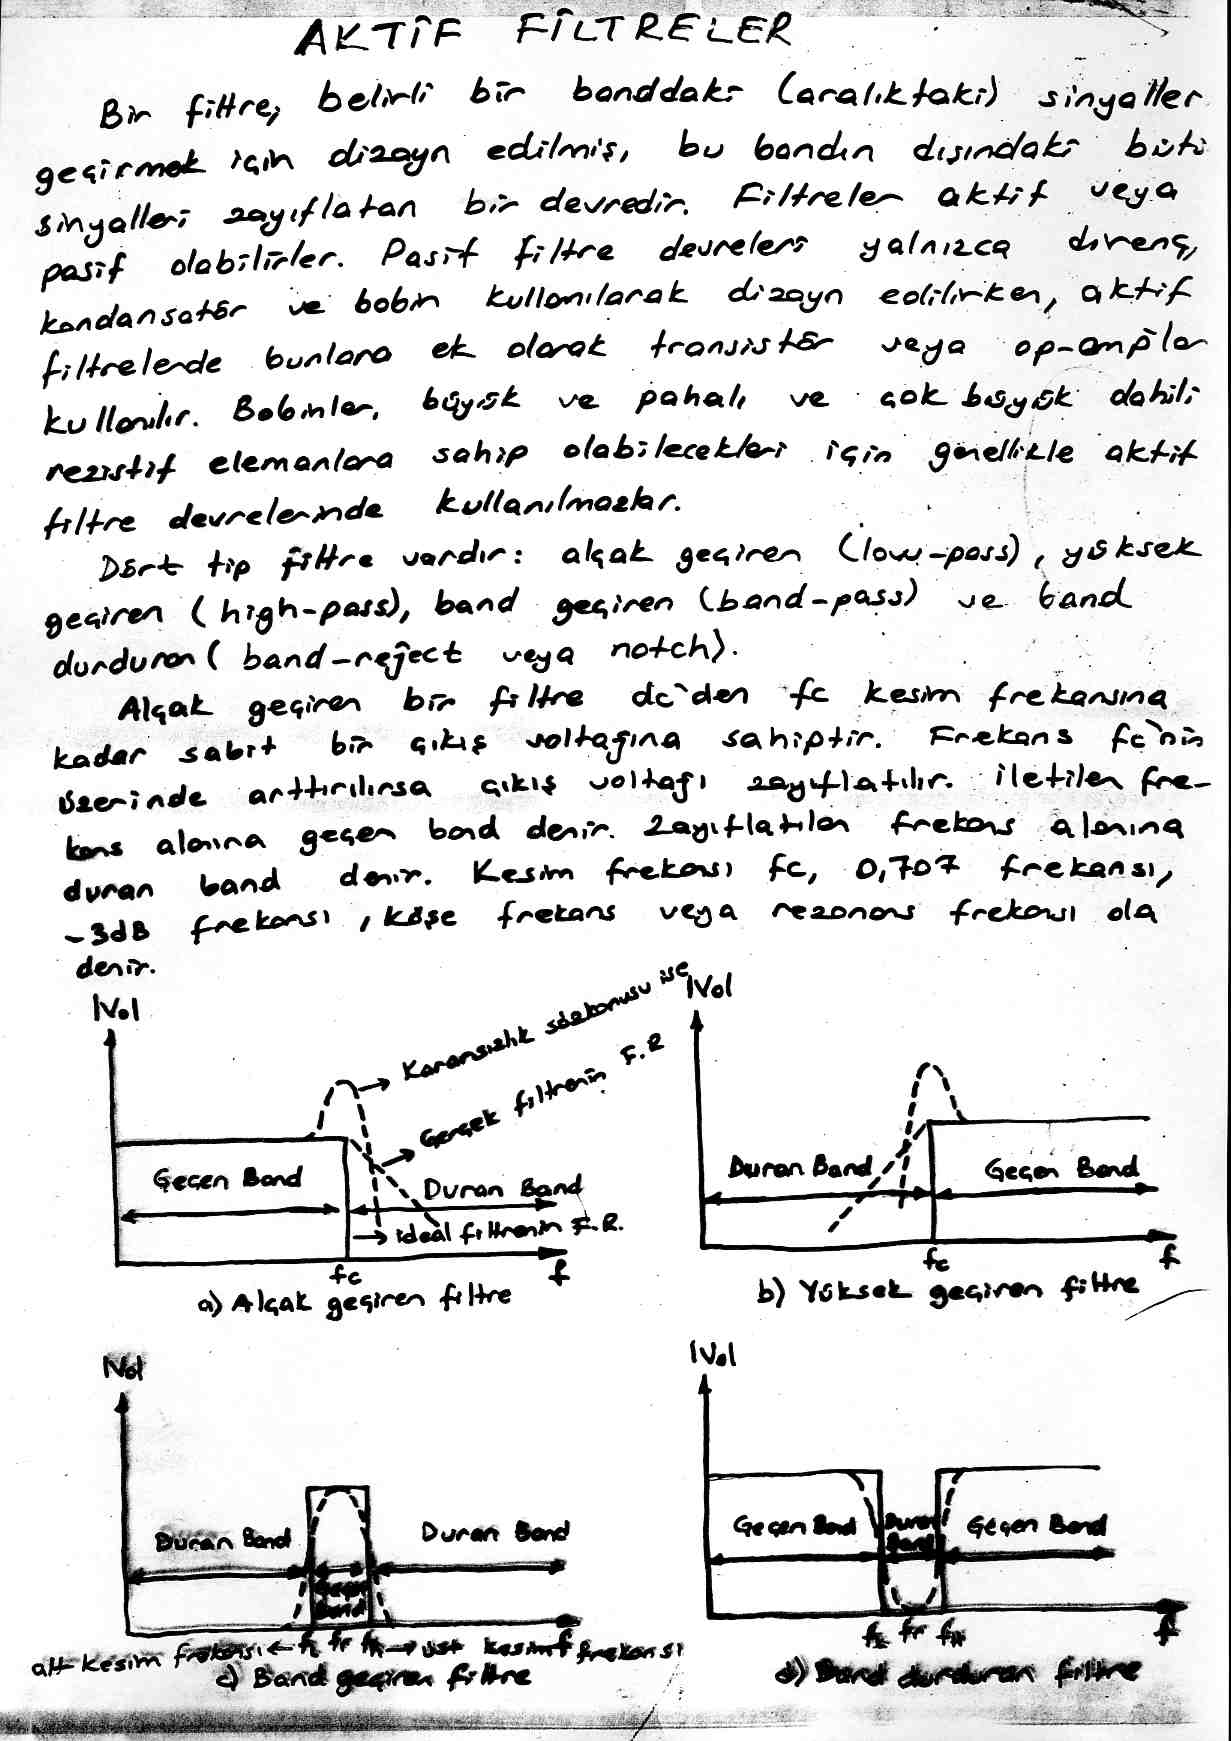 AKTİF FİLTRELER
Bir filtre, belirli bir banddaki (aralıktaki) sinyaller
geçirmek için dizayn edilmiş, bu bandın dışındaki bütü
sinyalleri zayıflatan bir devredir. Filtreler aktif veya
pasif olabilirler. Pasif filtre devreleri yalnızca direnç,
kondansatör ve bobin kullanılarak dizayn edilirken, aktif
filtrelerde bunlara ek olarak transistör veya op-amplar
kullanılır. Bobinler, büyük ve pahalı ve çok büyük dahili
rezistif elemanlara sahip olabilecekleri için genellikle aktif
filtre devrelerinde kullanılmazlar.
Dört tip filtre vardır: alçak geçiren (low-pass), yüksek
geçiren (high-pass), band geçiren (band-pass) ve band
durduran (band-reject veya notch).
Alçak geçiren bir filtre dc'den fc kesim frekansına
kadar sabit bir çıkış voltajına sahiptir. Frekans fc'nin
üzerinde arttırılırsa çıkış voltajı zayıflatılır. İletilen fre-
kans alanına geçen band denir. Zayıflatılan frekans alanına
duran band denir. Kesim frekansı fc, 0,707 frekansı,
-3dB frekansı, köşe frekans veya rezonans frekansı ola
denir.
|Vo|
Kararsızlık sözkonusu ise
Gerçek filtrenin F.R
Geçen Band
Duran Band
ideal filtrenin F.R.
fc
f
a) Alçak geçiren filtre
|Vo|
Duran Band
Geçen Band
fc
f
b) Yüksek geçiren filtre
|Vo|
Duran Band
Geçen
Band
Duran Band
alt kesim frekansı ← fL fr fH → üst kesim frekansı
f
c) Band geçiren filtre
|Vo|
Geçen Band
Duran
Band
Geçen Band
fL fr fH
f
d) Band durduran filtre